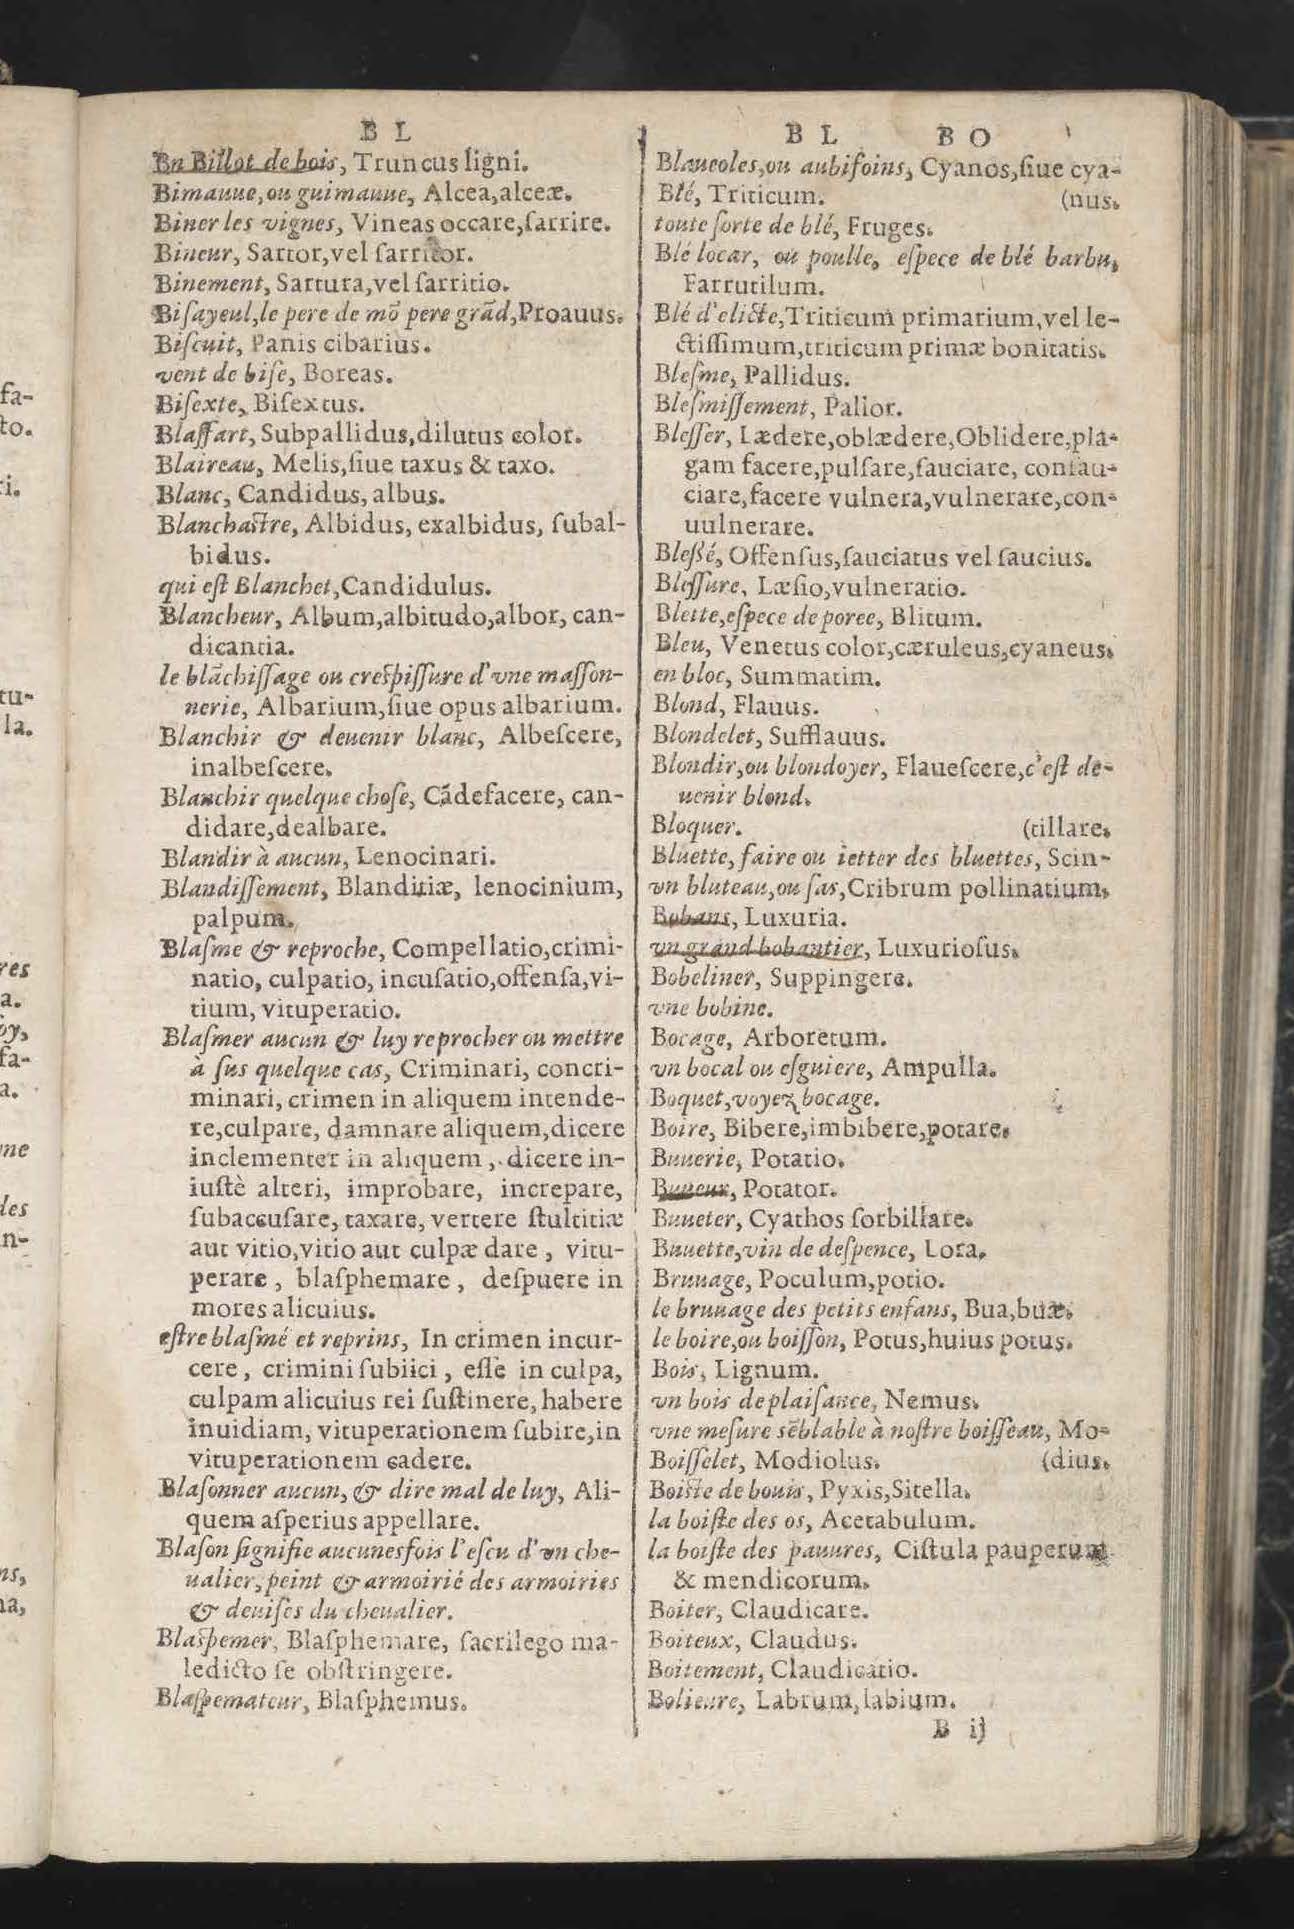 B L
Bn Billot de bois, Truncus ligni.
Bimauue, ou guimauue, Alcea, alceæ.
Biner les vignes, Vineas occare, ſarrire.
Bineur, Sartor, vel ſarritor.
Binement, Sartura, vel ſarritio.
Biſayeul, le pere de mõ pere grãd, Proauus.
Biſcuit, Panis cibarius.
vent de biſe, Boreas.
Biſexte, Biſextus.
Blaffart, Subpallidus, dilutus color.
Blaireau, Melis, ſiue taxus & taxo.
Blanc, Candidus, albus.
Blanchaſtre, Albidus, exalbidus, ſubal-
bidus.
qui eſt Blanchet, Candidulus.
Blancheur, Album, albitudo, albor, can-
dicantia.
le blãchiſſage ou creſpiſſure d'vne maſſon-
nerie, Albarium, ſiue opus albarium.
Blanchir & deuenir blanc, Albeſcere,
inalbeſcere.
Blanchir quelque choſe, Cãdefacere, can-
didare, dealbare.
Blandir à aucun, Lenocinari.
Blandiſſement, Blanditiæ, lenocinium,
palpum.
Blaſme & reproche, Compellatio, crimi-
natio, culpatio, incuſatio, offenſa, vi-
tium, vituperatio.
Blaſmer aucun & luy reprocher ou mettre
à ſus quelque cas, Criminari, concri-
minari, crimen in aliquem intende-
re, culpare, damnare aliquem, dicere
inclementer in aliquem, dicere in-
iuſtè alteri, improbare, increpare,
ſubaccuſare, taxare, vertere ſtultitiæ
aut vitio, vitio aut culpæ dare, vitu-
perare, blaſphemare, deſpuere in
mores alicuius.
eſtre blaſmé et reprins, In crimen incur-
rere, crimini ſubiici, eſſe in culpa,
culpam alicuius rei ſuſtinere, habere
inuidiam, vituperationem ſubire, in
vituperationem cadere.
Blaſonner aucun, & dire mal de luy, Ali-
quem aſperius appellare.
Blaſon ſignifie aucunesfois l'eſcu d'vn che-
ualier, peint & armoirié des armoiries
& deuiſes du cheualier.
Blaſpemer, Blaſphemare, ſacrilego ma-
ledicto ſe obſtringere.
Blaſpemateur, Blaſphemus.
B L B O
Blaueoles, ou aubifoins, Cyanos, ſiue cya-
Blé, Triticum. (nus.
toute ſorte de blé, Fruges.
Blé locar, ou poulle, eſpece de blé barbu,
Farrutilum.
Blé d'elicte, Triticum primarium, vel le-
ctiſſimum, triticum primæ bonitatis.
Bleſme, Pallidus.
Bleſmiſſement, Pallor.
Bleſſer, Lædere, oblædere, Oblidere, pla-
gam facere, pulſare, ſauciare, conſau-
ciare, facere vulnera, vulnerare, con-
uulnerare.
Bleßé, Offenſus, ſauciatus vel ſaucius.
Bleſſure, Læſio, vulneratio.
Blette, eſpece de poree, Blitum.
Bleu, Venetus color, cæruleus, cyaneus.
en bloc, Summatim.
Blond, Flauus.
Blondelet, Sufflauus.
Blondir, ou blondoyer, Flaueſcere, c'eſt de-
uenir blond.
Bloquer. (tillare.
Bluette, faire ou ietter des bluettes, Scin-
vn bluteau, ou ſas, Cribrum pollinatium.
Bobans, Luxuria.
vn grand bobantier, Luxurioſus.
Bobeliner, Suppingere.
vne bobine.
Bocage, Arboretum.
vn bocal ou eſguiere, Ampulla.
Boquet, voyez bocage.
Boire, Bibere, imbibere, potare.
Buuerie, Potatio.
Buueur, Potator.
Buueter, Cyathos ſorbillare.
Buuette, vin de deſpence, Lora.
Bruuage, Poculum, potio.
le bruuage des petits enfans, Bua, buæ.
le boire, ou boiſſon, Potus, huius potus.
Bois, Lignum.
vn bois de plaiſance, Nemus.
vne meſure sẽblable à noſtre boiſſeau, Mo-
Boiſſelet, Modiolus. (dius.
Boiſte de bouis, Pyxis, Sitella.
la boiſte des os, Acetabulum.
la boiſte des pauures, Ciſtula pauperum
& mendicorum.
Boiter, Claudicare.
Boiteux, Claudus.
Boitement, Claudicatio.
Bolieure, Labrum, labium.
B ij